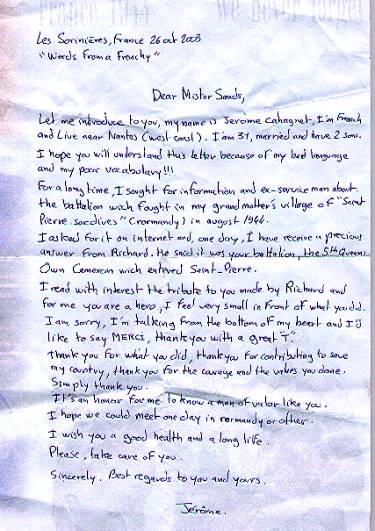 France 1944 we never forget
Les Sorinières, France 26 oct 2003
"Words From a Frenchy"
Dear Mister Sands,
Let me introduce to you, my name is Jerome Cahagnet, I'm French
and Live near Nantes (west coast). I am 31, married and have 2 sons.
I hope you will understand this letter because of my bad language
and my poor vocabulary!!!
For a long time, I sought for information and ex-service man about
the battalion wich fought in my grandmother's village of "Saint
Pierre sur dives" (normandy) in august 1944.
I asked for it on internet and, one day, I have receive a precious
answer from Richard. He said it was your battalion, the 5th Queens
Own Cameron wich entered Saint-Pierre.
I read with interest the tribute to you made by Richard and
for me you are a hero, I feel very small in front of what you did.
I am sorry, I'm talking from the bottom of my heart and I'd
like to say MERCI, thank you with a great "T".
thank you for what you did, thank you for contributing to save
my country, thank you for the courage and the values you done.
Simply thank you.
It's an honor for me to know a man of valor like you.
I hope we could meet one day in normandy or other.
I wish you a good health and a long life.
Please, take care of you.
Sincerely. Best regards to you and yours.
Jérôme.